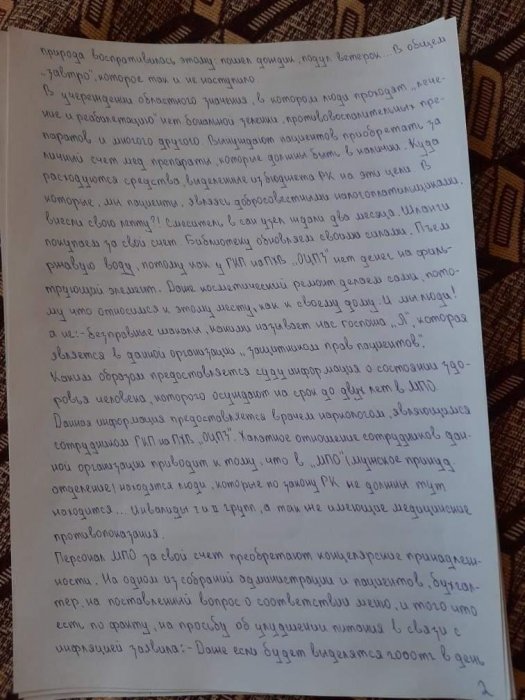 природа воспротивилась этому: пошел дождик, подул ветерок... В общем
-завтро", которое так и не наступило.
В учереждении областного значения, в котором люди проходят "лече-
ние и реабилетацию" нет банальной зеленки, противовоспалительных пре-
паратов и многого другого. Вынуждают пациентов приобретать за
личный счет мед.препараты, которые должны быть в наличии. Куда
расходуются средства, выделенные из бюджета РК на эти цели. В
которые, мы пациенты, являясь добросовестными налогоплатильщиками,
внесли свою лепту?! Смеситель в сан.узел ждали два месяца. Шланги
покупаем за свой счет. Библиотеку обновляем своими силами. Пъем
ржавую воду, потому как у ГКП на ПХВ "ОЦПЗ" нет денег на филь-
трующий элемент. Даже косметический ремонт делаем сами, пото-
му что относимся к этому месту, как к своему дому. И мы люди!
а не:- Безправные шакалы, какими называет нас госпожа "Я", которая
является в данной организации "защитником прав пациентов".
Каким образом предоставляется суду информация о состоянии здо-
ровья человека, которого осуждают на срок до двух лет в МПО.
Данная информация предоставляется врачем наркологом, являющимся
сотрудником ГКП на ПХВ "ОЦПЗ". Халатное отношение сотрудников дан-
ной организации приводит к тому, что в "МПО" (мужское принуд.
отделение) находятся люди, которые по закону РК не должны тут
находится... Инвалиды I и II групп, а так же имеющие медицинские
противопоказания.
Персонал МПО за свой счет преобретают канцелярское принадлеж-
ности. На одном из собраний администрации и пациентов, бухгал-
тер, на поставленный вопрос о соответствии меню, и того что
есть по факту, на просьбу об улудшении питания в связи с
инфляцией заявила:- Даже если будет выделятся 2000тг в день
2